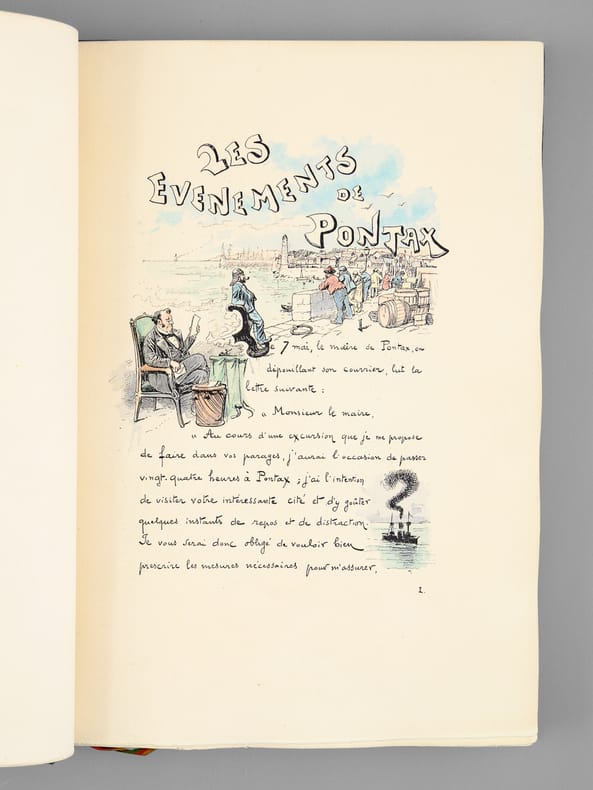 LES
EVENEMENTS
DE
PONTAX
Le 7 mai, le maire de Pontax, en
dépouillant son courrier, lut la
lettre suivante :
« Monsieur le maire,
« Au cours d'une excursion que je me propose
de faire dans vos parages, j'aurai l'occasion de passer
vingt-quatre heures à Pontax ; j'ai l'intention
de visiter votre intéressante cité et d'y goûter
quelques instants de repos et de distraction.
Je vous serai donc obligé de vouloir bien
prescrire les mesures nécessaires pour m'assurer,
?
1.